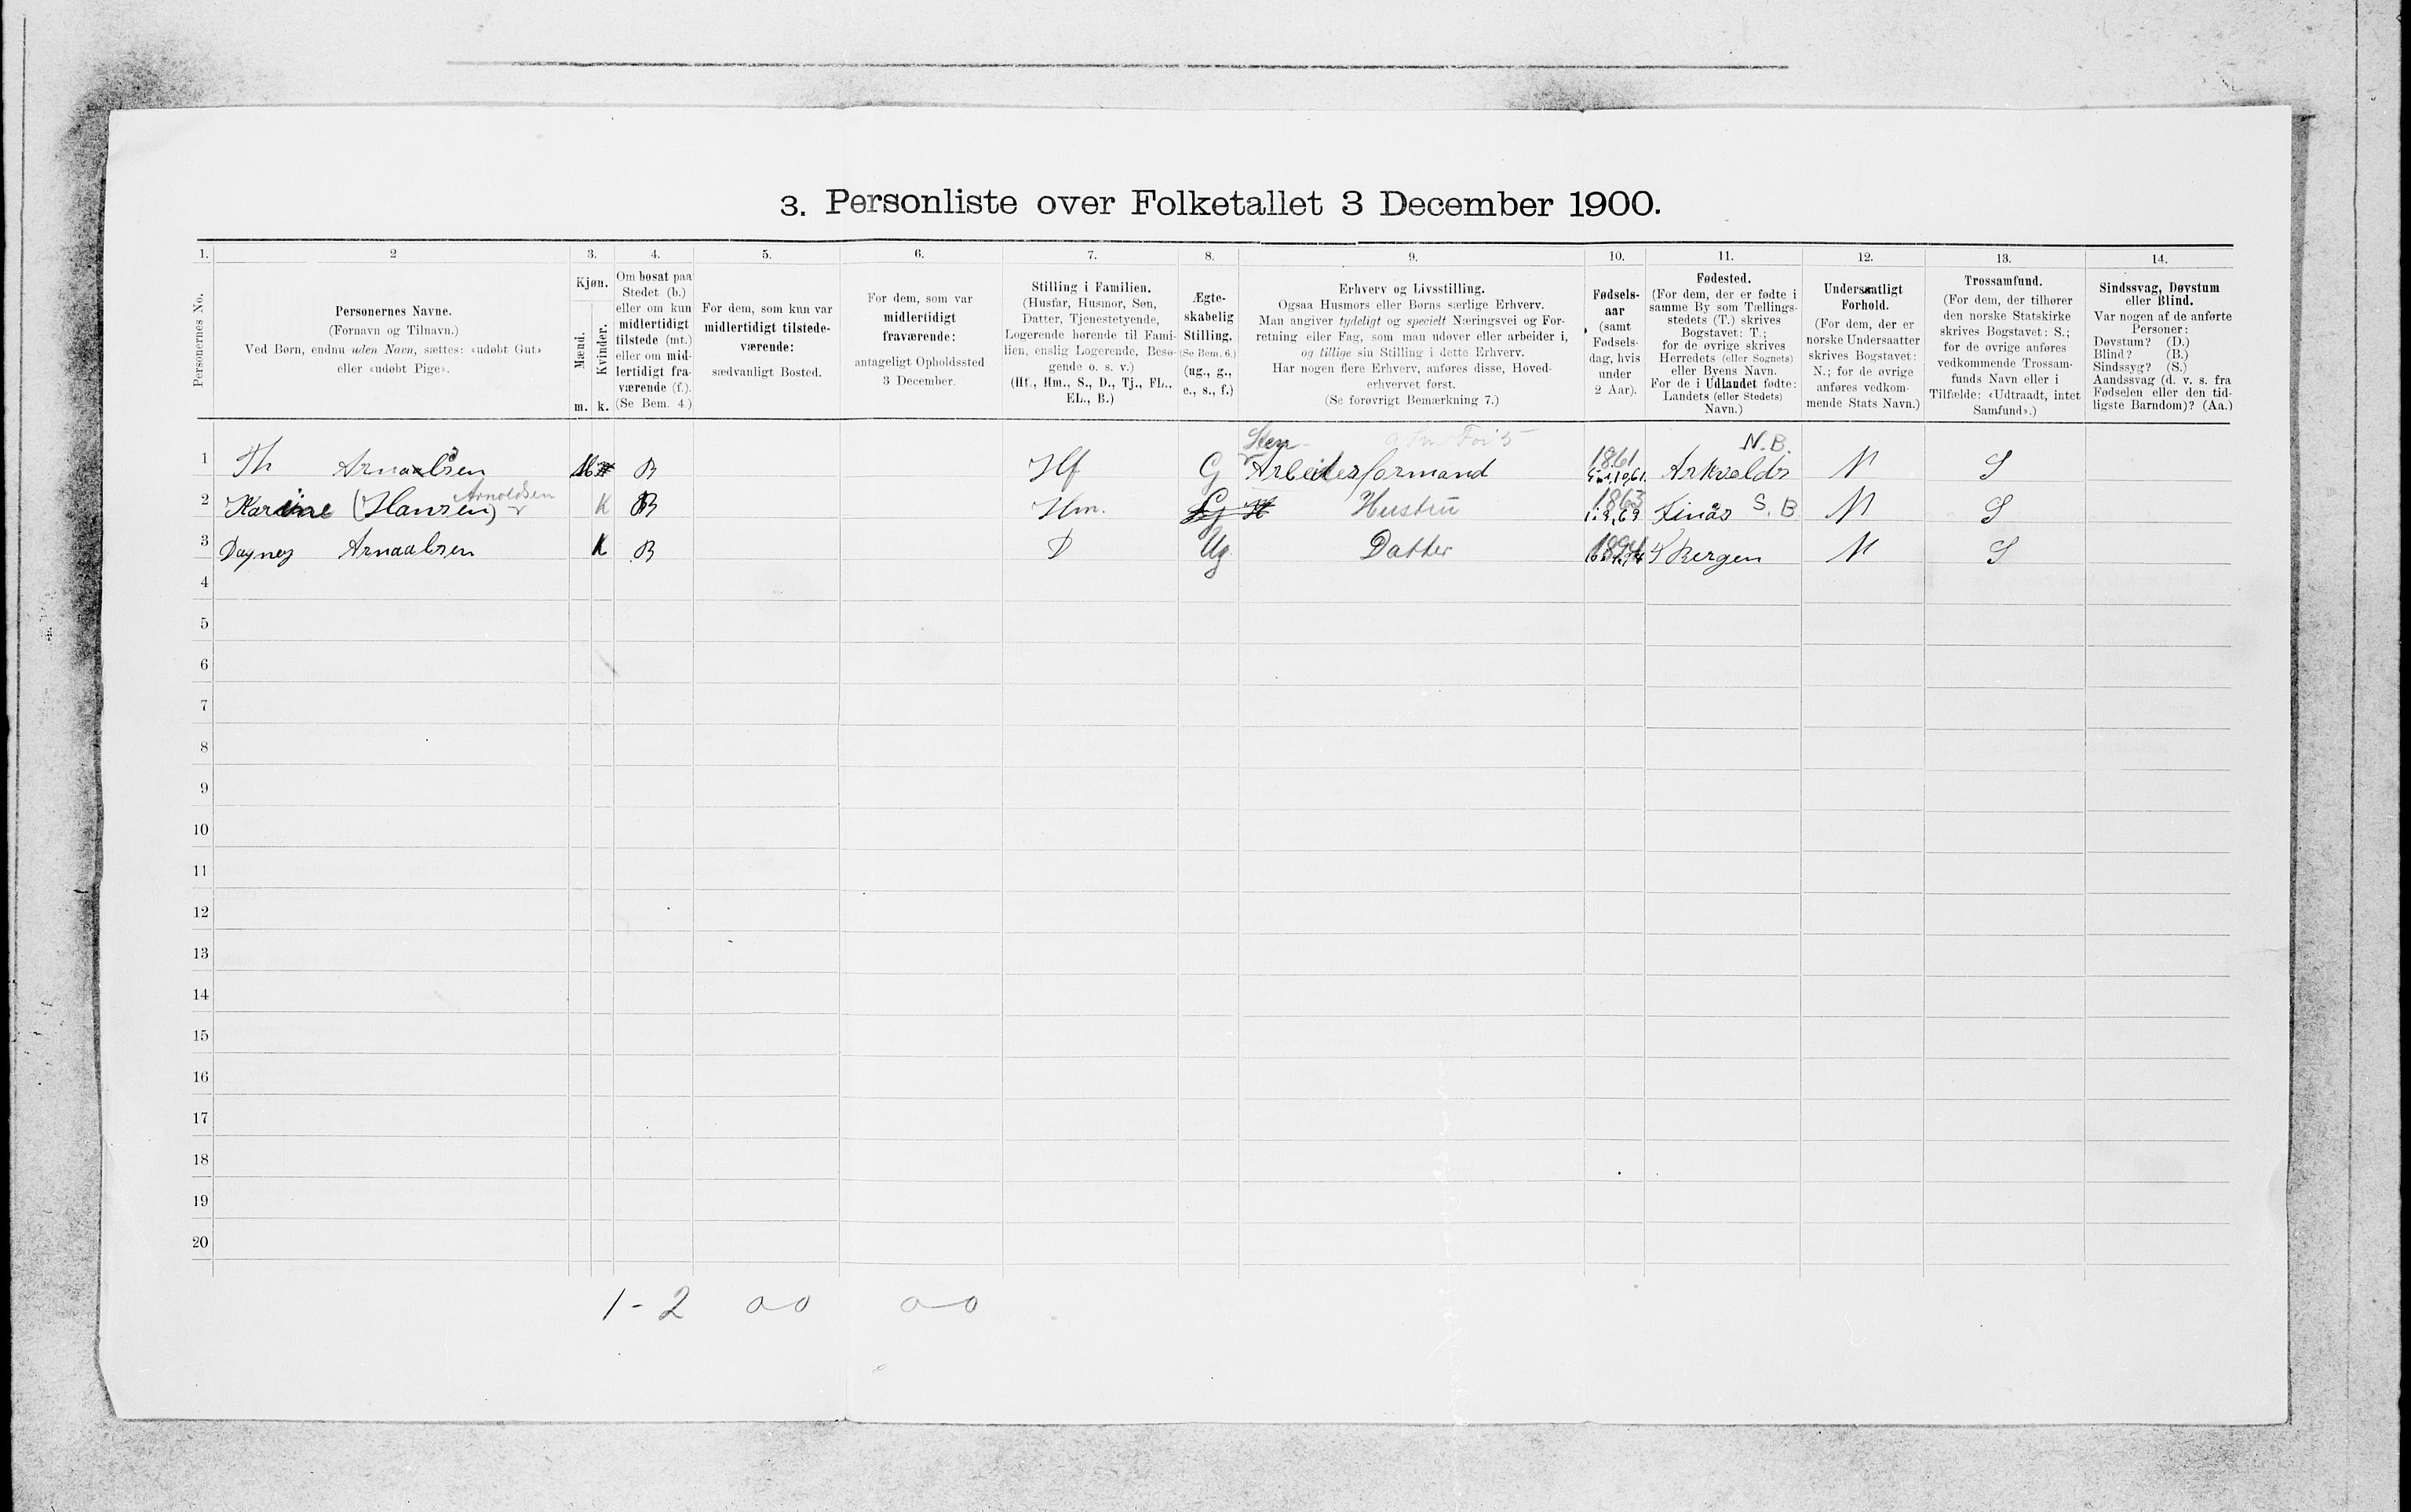 3. Personliste over Folketallet 3 December 1900.
1. 2 3. 4. 5. 6. 7. 8. 9. 10. 11. 12. 13. 14.
Personernes No.
Personernes Navne.
(Fornavn og Tilnavn.)
Ved Børn, endnu uden Navn, sættes: «udøbt Gut»
eller «udøbt Pige».
Kjøn.
Mænd.
Kvinder.
m. k.
Om bosat paa
Stedet (b.)
eller om kun
midlertidigt
tilstede (mt.)
eller om mid-
lertidigt fra-
værende (f.).
(Se Bem. 4.)
For dem, som kun var
midlertidigt tilstede-
værende:
sædvanligt Bosted.
For dem, som var
midlertidigt
fraværende:
antageligt Opholdssted
3 December.
Stilling i Familien.
(Husfar, Husmor, Søn,
Datter, Tjenestetyende,
Logerende hørende til Fami-
lien, enslig Logerende, Besø-
gende o. s. v.)
(Hf., Hm., S., D., Tj., FL.,
EL., B.)
Ægte-
skabelig
Stilling.
(Se Bem. 6.)
(ug., g.,
e., s., f.)
Erhverv og Livsstilling.
Ogsaa Husmors eller Børns særlige Erhverv.
Man angiver tydeligt og specielt Næringsvei og For-
retning eller Fag, som man udøver eller arbeider i,
og tillige sin Stilling i dette Erhverv.
Har nogen flere Erhverv, anføres disse, Hoved-
erhvervet først.
(Se forøvrigt Bemærkning 7.)
Fødsels-
aar
(samt
Fødsels-
dag, hvis
under
2 Aar).
Fødested.
(For dem, der er fødte i
samme By som Tællings-
stedets (T.) skrives
Bogstavet: T.;
for de øvrige skrives
Herredets (eller Sognets)
eller Byens Navn.
For de i Udlandet fødte:
Landets (eller Stedets)
Navn.)
Undersaatligt
Forhold.
(For dem, der er
norske Undersaatter
skrives Bogstavet:
N.; for de øvrige
anføres vedkom-
mende Stats Navn.)
Trossamfund.
(For dem, der tilhører
den norske Statskirke
skrives Bogstavet: S.;
for de øvrige anføres
vedkommende Trossam-
funds Navn eller i
Tilfælde: «Udtraadt, intet
Samfund».)
Sindssvag, Døvstum
eller Blind.
Var nogen af de anførte
Personer:
Døvstum? (D.)
Blind? (B.)
Sindssyg? (S.)
Aandssvag (d. v. s. fra
Fødselen eller den tid-
ligste Barndom)? (Aa.)
Sten N.B.
1 Th B Hf G Arbeidesformand 1861 N S
Arnoldsen
2 Karine (Hansen) K B Hm. Hustru 1863 Finås S. B N S
3 Dagney K B D Ug. Datter Bergen N S
4
5
6
7
8
9
10
11
12
13
14
15
16
17
18
19
20
1-2 00 00